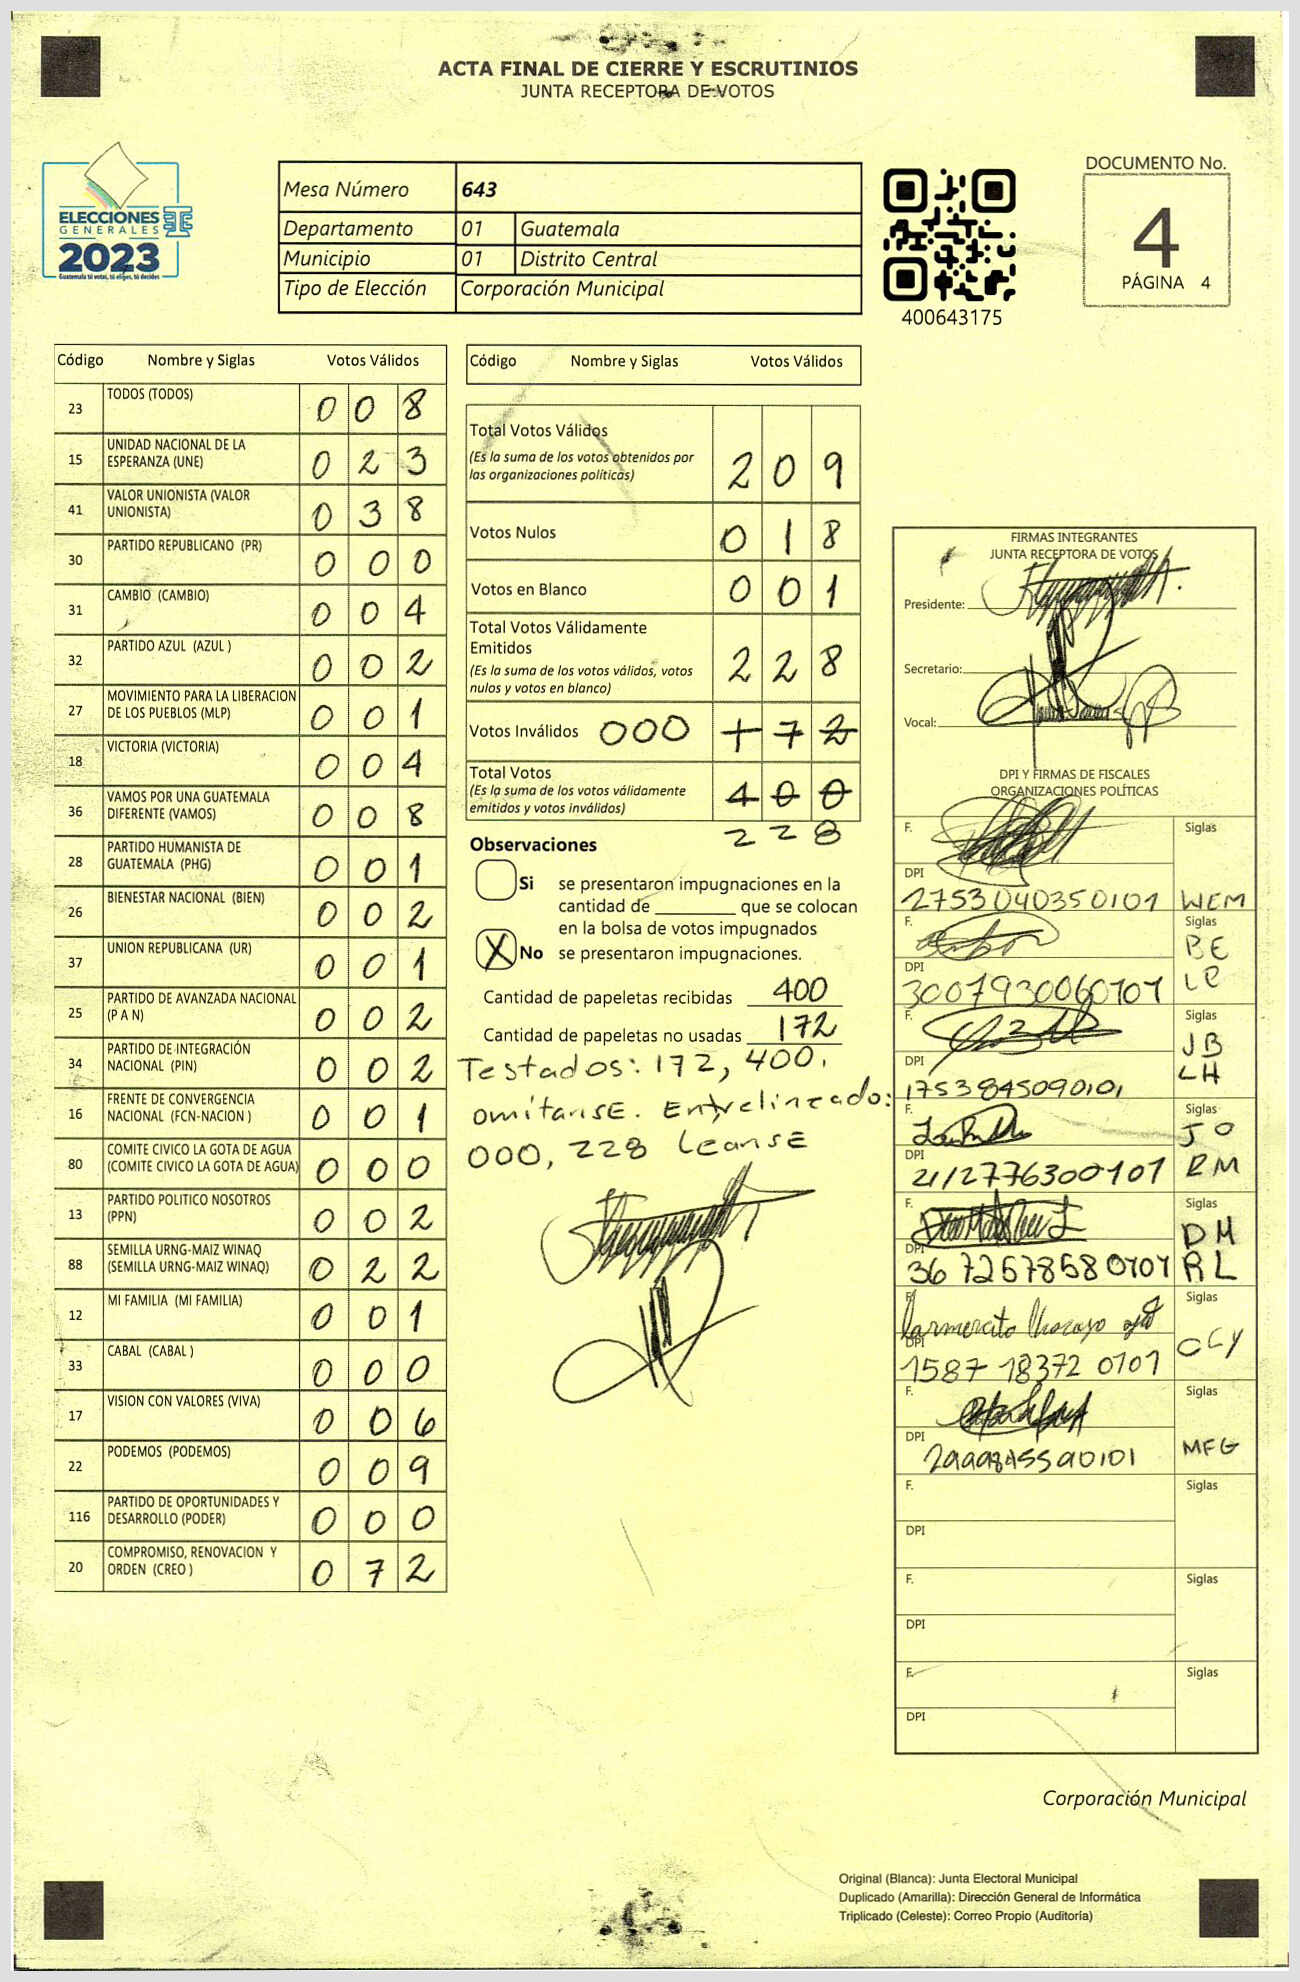 ACTA FINAL DE CIERRE Y ESCRUTINIOS
JUNTA RECEPTORA DE VOTOS
ELECCIONES
GENERALES
2023
Guatemala tú votas, tú eliges, tú decides
Mesa Número 643
Departamento 01 Guatemala
Municipio 01 Distrito Central
Tipo de Elección Corporación Municipal
400643175
DOCUMENTO No.
4
PÁGINA 4
Código Nombre y Siglas Votos Válidos
23 TODOS (TODOS) 0 0 8
15 UNIDAD NACIONAL DE LA
ESPERANZA (UNE) 0 2 3
41 VALOR UNIONISTA (VALOR
UNIONISTA) 0 3 8
30 PARTIDO REPUBLICANO (PR) 0 0 0
31 CAMBIO (CAMBIO) 0 0 4
32 PARTIDO AZUL (AZUL ) 0 0 2
27 MOVIMIENTO PARA LA LIBERACION
DE LOS PUEBLOS (MLP) 0 0 1
18 VICTORIA (VICTORIA) 0 0 4
36 VAMOS POR UNA GUATEMALA
DIFERENTE (VAMOS) 0 0 8
28 PARTIDO HUMANISTA DE
GUATEMALA (PHG) 0 0 1
26 BIENESTAR NACIONAL (BIEN) 0 0 2
37 UNION REPUBLICANA (UR) 0 0 1
25 PARTIDO DE AVANZADA NACIONAL
(P A N) 0 0 2
34 PARTIDO DE INTEGRACIÓN
NACIONAL (PIN) 0 0 2
16 FRENTE DE CONVERGENCIA
NACIONAL (FCN-NACION ) 0 0 1
80 COMITE CIVICO LA GOTA DE AGUA
(COMITE CIVICO LA GOTA DE AGUA) 0 0 0
13 PARTIDO POLITICO NOSOTROS
(PPN) 0 0 2
88 SEMILLA URNG-MAIZ WINAQ
(SEMILLA URNG-MAIZ WINAQ) 0 2 2
12 MI FAMILIA (MI FAMILIA) 0 0 1
33 CABAL (CABAL ) 0 0 0
17 VISION CON VALORES (VIVA) 0 0 6
22 PODEMOS (PODEMOS) 0 0 9
116 PARTIDO DE OPORTUNIDADES Y
DESARROLLO (PODER) 0 0 0
20 COMPROMISO, RENOVACION Y
ORDEN (CREO ) 0 7 2
Código Nombre y Siglas Votos Válidos
Total Votos Válidos
(Es la suma de los votos obtenidos por
las organizaciones politicas) 2 0 9
Votos Nulos 0 1 8
Votos en Blanco 0 0 1
Total Votos Válidamente
Emitidos
(Es la suma de los votos válidos, votos
nulos y votos en blanco) 2 2 8
Votos Inválidos 000 1 7 2
Total Votos
(Es la suma de los votos válidamente
emitidos y votos inválidos) 4 0 0
2 2 8
Observaciones
Si se presentaron impugnaciones en la
cantidad de ________ que se colocan
en la bolsa de votos impugnados
X No se presentaron impugnaciones.
Cantidad de papeletas recibidas 400
Cantidad de papeletas no usadas 172
Testados: 172, 400.
omitanse. Entrelineado:
000, 228 Leanse
FIRMAS INTEGRANTES
JUNTA RECEPTORA DE VOTOS
Presidente:
Secretario:
Vocal:
DPI Y FIRMAS DE FISCALES
ORGANIZACIONES POLÍTICAS
F. Siglas
DPI
2753040350101 WEM
F. Siglas
BE
DPI LP
3007930060101
F. Siglas
JB
DPI LH
1753845090101
F. Siglas
JO
DPI RM
2112776300101
F. Siglas
DM
DPI RL
3672578580101
F. Siglas
DPI OCY
1587 18372 0101
F. Siglas
DPI MFG
F. Siglas
DPI
F. Siglas
DPI
F. Siglas
DPI
Corporación Municipal
Original (Blanca): Junta Electoral Municipal
Duplicado (Amarilla): Dirección General de Informática
Triplicado (Celeste): Correo Propio (Auditoría)